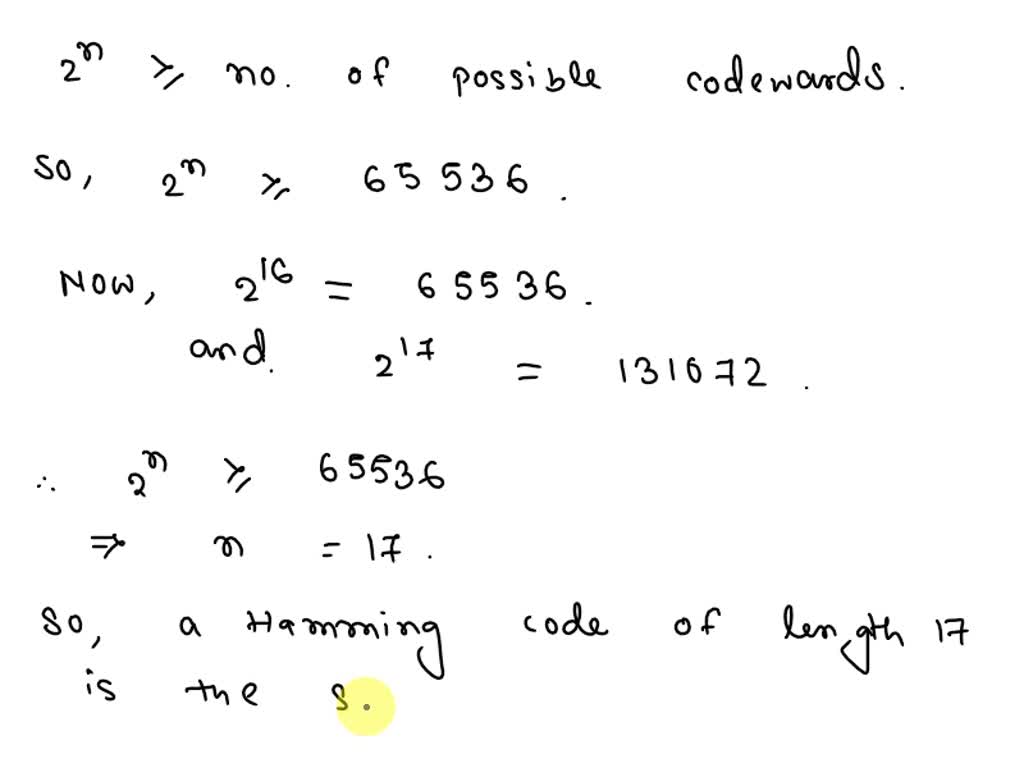 2^n ⩾ no. of possible codewards.
So, 2^n ⩾ 65536.
Now, 2^16 = 65536.
and. 2^17 = 131072.
∴ 2^n ⩾ 65536
⇒ n = 17.
So, a Hamming code of length 17
is the s.